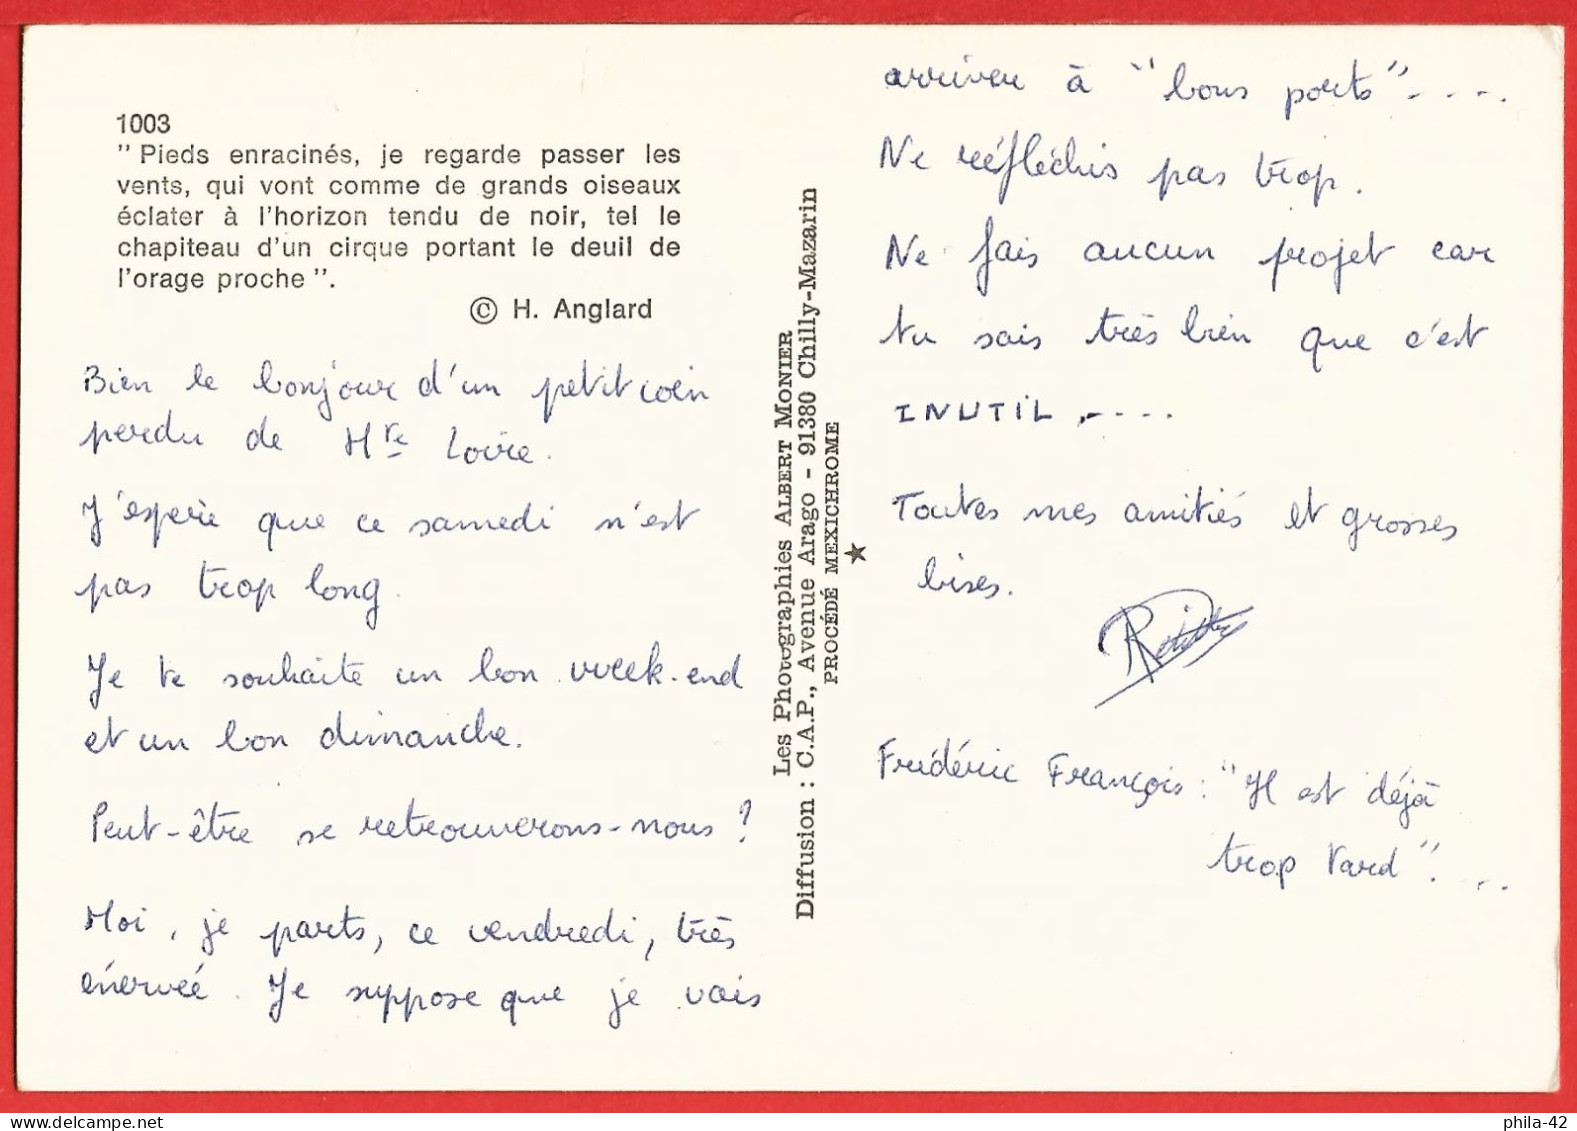 1003
" Pieds enracinés, je regarde passer les
vents, qui vont comme de grands oiseaux
éclater à l'horizon tendu de noir, tel le
chapiteau d'un cirque portant le deuil de
l'orage proche ".
© H. Anglard
Bien le bonjour d'un petit coin
perdu de Hte Loire.
J'espère que ce samedi n'est
pas trop long.
Je te souhaite un bon week-end
et un bon dimanche.
Peut-être se retrouverons-nous ?
Moi, je parts, ce vendredi, très
énervée. Je suppose que je vais
Les Photographies ALBERT MONIER
Diffusion : C.A.P., Avenue Arago - 91380 Chilly-Mazarin
PROCÉDÉ MEXICHROME
arriver à "bons ports"....
Ne réfléchis pas trop.
Ne fais aucun projet car
tu sais très bien que c'est
INUTIL,....
Toutes mes amitiés et grosses
bises.
Frédéric François : "Il est déjà
trop tard"...
phila-42